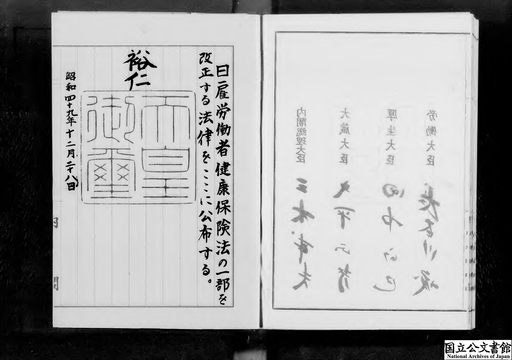 日雇労働者健康保険法の一部を
改正する法律をここに公布する。
裕仁
天皇
御璽
昭和四十九年十二月二十八日
内閣
労働大臣 長谷川峻
厚生大臣 田中正巳
大蔵大臣 大平正芳
内閣総理大臣 三木武夫
国立公文書館
National Archives of Japan